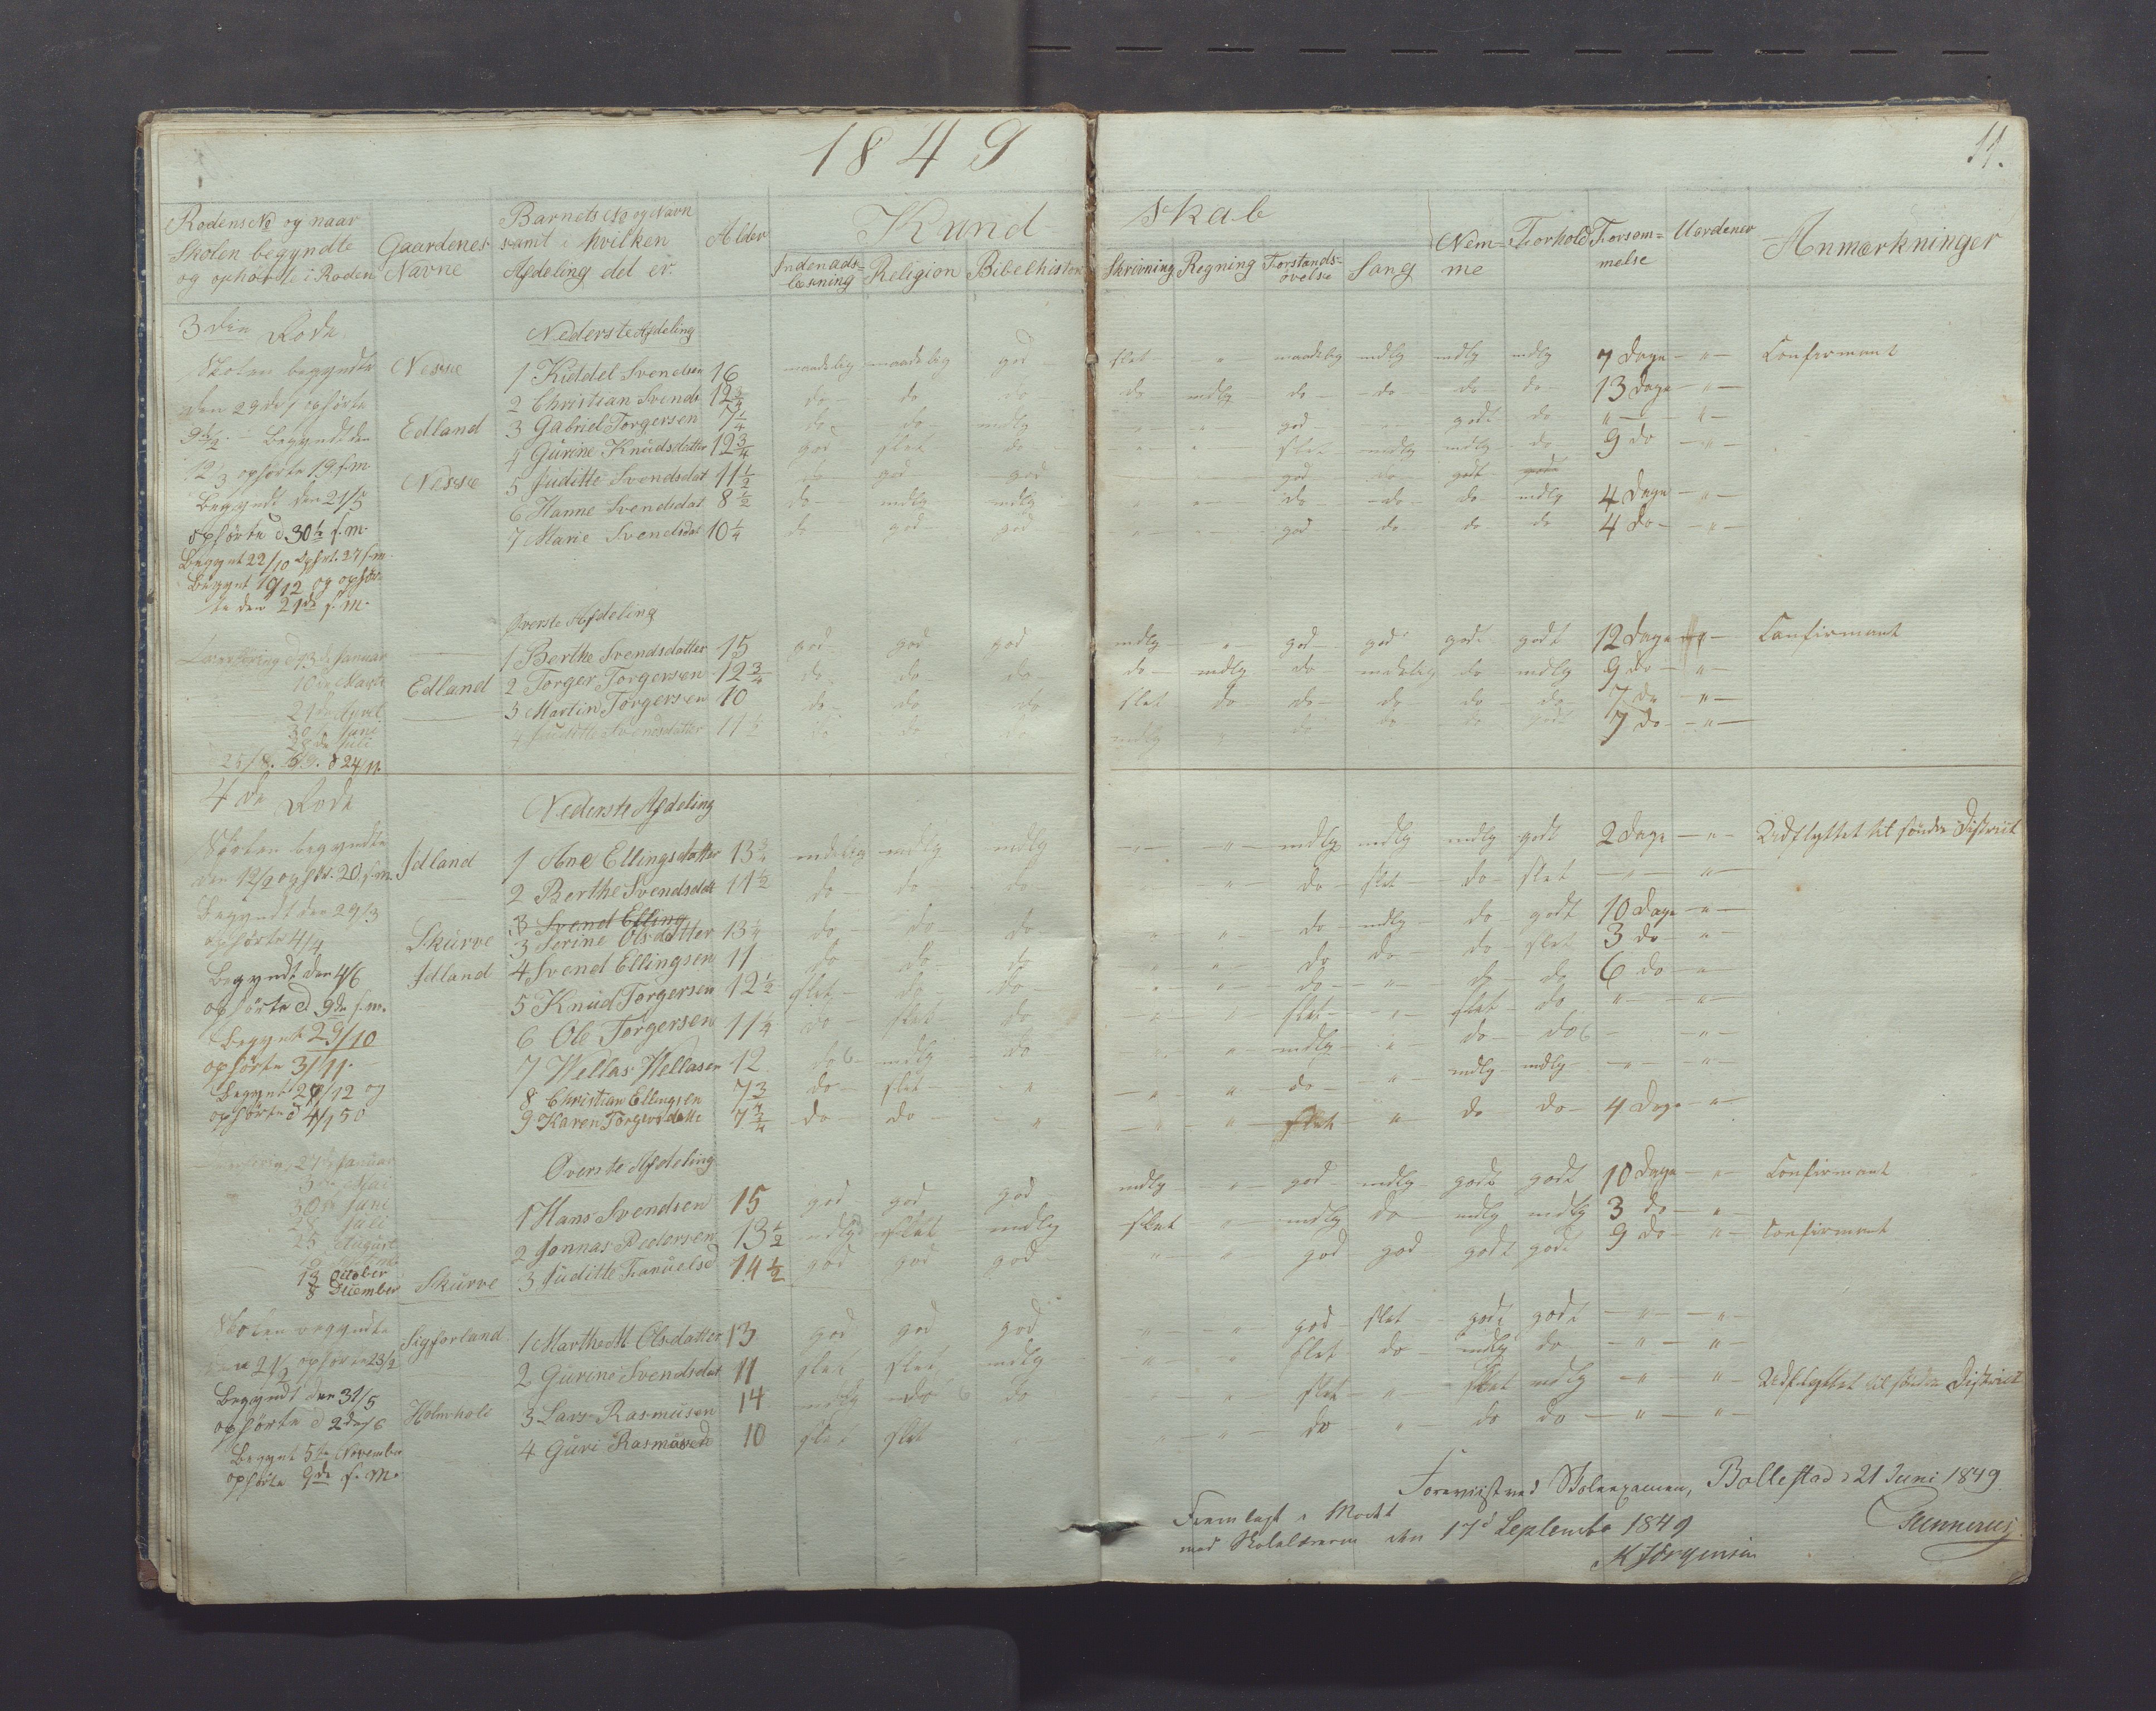 1849
11.
Rodens No og naar Skolen begyndte og ophörte i Roden
Gaardenes Navne
Barnets No og Navn samt i hvilken Afdeling det er.
Alder
Kundskab
Indenadslæsning Religion Bibelhistorie Skrivning Regning Forstandsøvelse Sang
Nemme Forhold Forsømmelse Uordener Anmærkninger
3die Rode
Nederste Afdeling
Skolen begyndte
Nesse 1 Kiddel Svendsen 16 maadelig maadelig god slet " maadelig mdlg mdlg mdlg 7 Dage " Confirmant
2 Christian Svends 12 3/4 do do do do mdlg do do do do 13 Dage "
Edland 3 Gabriel Torgersen 7 1/4 do do mdlg god godt do " "
4 Gurine Knudsdatter 12 3/4 god slet do slet mdlg mdlg do 9 do "
Nesse 5 Juditte Svendsdat 11 1/2 do god god god do godt
6 Hanne Svendsdat 8 1/2 do mdlg mdlg do do do mdlg 4 Dage "
7 Marie Svendsdat 10 1/4 do god god god do do do 4 do "
12/3 ophörte 19 f.m.
Begyndt den 21/5
ophörte d 30te f.m.
Begynt 22/10 Ophrt. 27 f.m.
Begynt 19/12 og ophör-
te den 21de f.m.
Øverste Afdeling
1 Berthe Svendsdatter 15 god god god mdlg " god god godt godt 12 Dage " Confirmant
Edland 2 Torger Torgersen 12 3/4 do do do do mdlg do mdelig do mdlg 9 do "
3 Martin Torgersen 10 do do do slet do do do do do 7 do "
4 Juditte Svendsdatter 11 1/2 do do do mdlg " do do do godt 7 do "
13de Januar
10de Marts
21de April
30te Juni
28de Juli
25/8. d 24/11.
4de Rode
Nederste Afdeling
Skolen begyndte
den 12/2 ophr. 20 f.m.
Begyndt den 29/3
ophörte 4/4
Begyndt den 4/6
ophörte d 9de f.m.
Begynt 29/10
ophörte 3/11.
Begynt 28/12 og
ophörte d 4/1 50
Idland 1 Ane Ellingsdatter 13 3/4 mdelig mdlg mdlg " " mdlg mdlg mdlg godt 2 Dage " Udflyttet til søndre District
2 Berthe Svendsdatt 11 1/2 do do do " do slet do slet " "
3 Svend Elling
Skurve 3 Serine Olsdatter 13 1/4 do do do " " do mdlg do godt 10 Dage "
Idland 4 Svend Ellingsen 11 do do do " " do do do slet 3 do "
5 Knud Torgersen 12 1/2 slet do do " " do " do do 6 do "
6 Ole Torgersen 11 1/4 do slet do " " slet " slet do " "
7 Wellas Wellasen 12 do mdlg do " " mdlg " do do "
8 Christian Ellingsen do slet " " " do " mdlg mdlg " "
9 Karen Torgersdatte 7 3/4 do do " " " slet " do do 4 Dage "
Øverste Afdeling
1 Hans Svendsen 15 god god god mdlg " god mdlg godt godt 10 Dage " Confirmant
2 Jonnas Pedersen 13 1/2 mdlg slet mdlg slet " mdlg do mdlg mdlg 3 do "
Skurve 3 Juditte Fanuelsd 14 1/2 god god god " " god god godt godt 9 do " Confirmant
27de Januar
Mai
30te Juni
28 Juli
25 August
13 October
8 Decembr
Skolen begyndte
ophörte 23/2
Begyndt den 31/5
ophörte d 2den/6
Begynt 5te November
ophörte 9de f.m.
Sigforland 1 Marthe M Olsdatter 13 god god god " " god slet godt godt " "
2 Gurine Svendsdat 11 slet slet mdlg " " slet do mdlg do " "
Holmheli 3 Lars Rasmusen 14 mdlg do do " " slet " slet mdlg " " Udflyttet til søndre District
4 Guri Rasmusd 10 slet slet " " " do " do do " "
Foreviist ved Skoleexamen, Bollestad d 21 Juni 1849
Gunnerus
Fremlagt i Modet
med Skolelæreren den 17d Septembr 1849
M Jörgensen